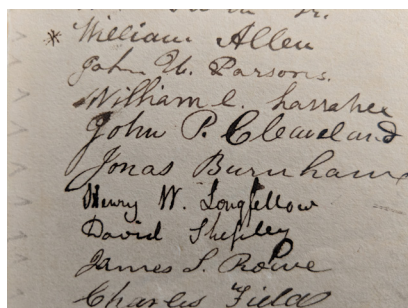 * William Allen
John U. Parsons.
William C. Larrabee
John P. Cleaveland
Jonas Burnham
Henry W. Longfellow
David Shepley
James S. Rowe
Charles Field